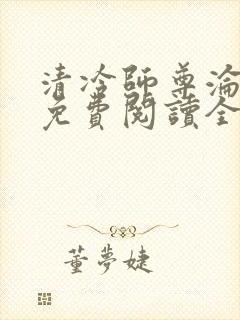 清冷師尊淪
免費閱讀全
董夢婕